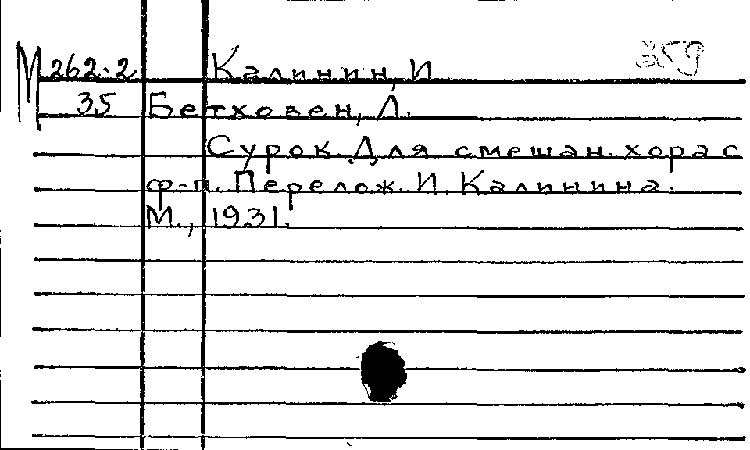 М 262-2 Калинин, И 359
35 Бетховен, Л.
Сурок. Для смешан. хора с
ф-п. Перелож. И. Калинина.
М., 1931.